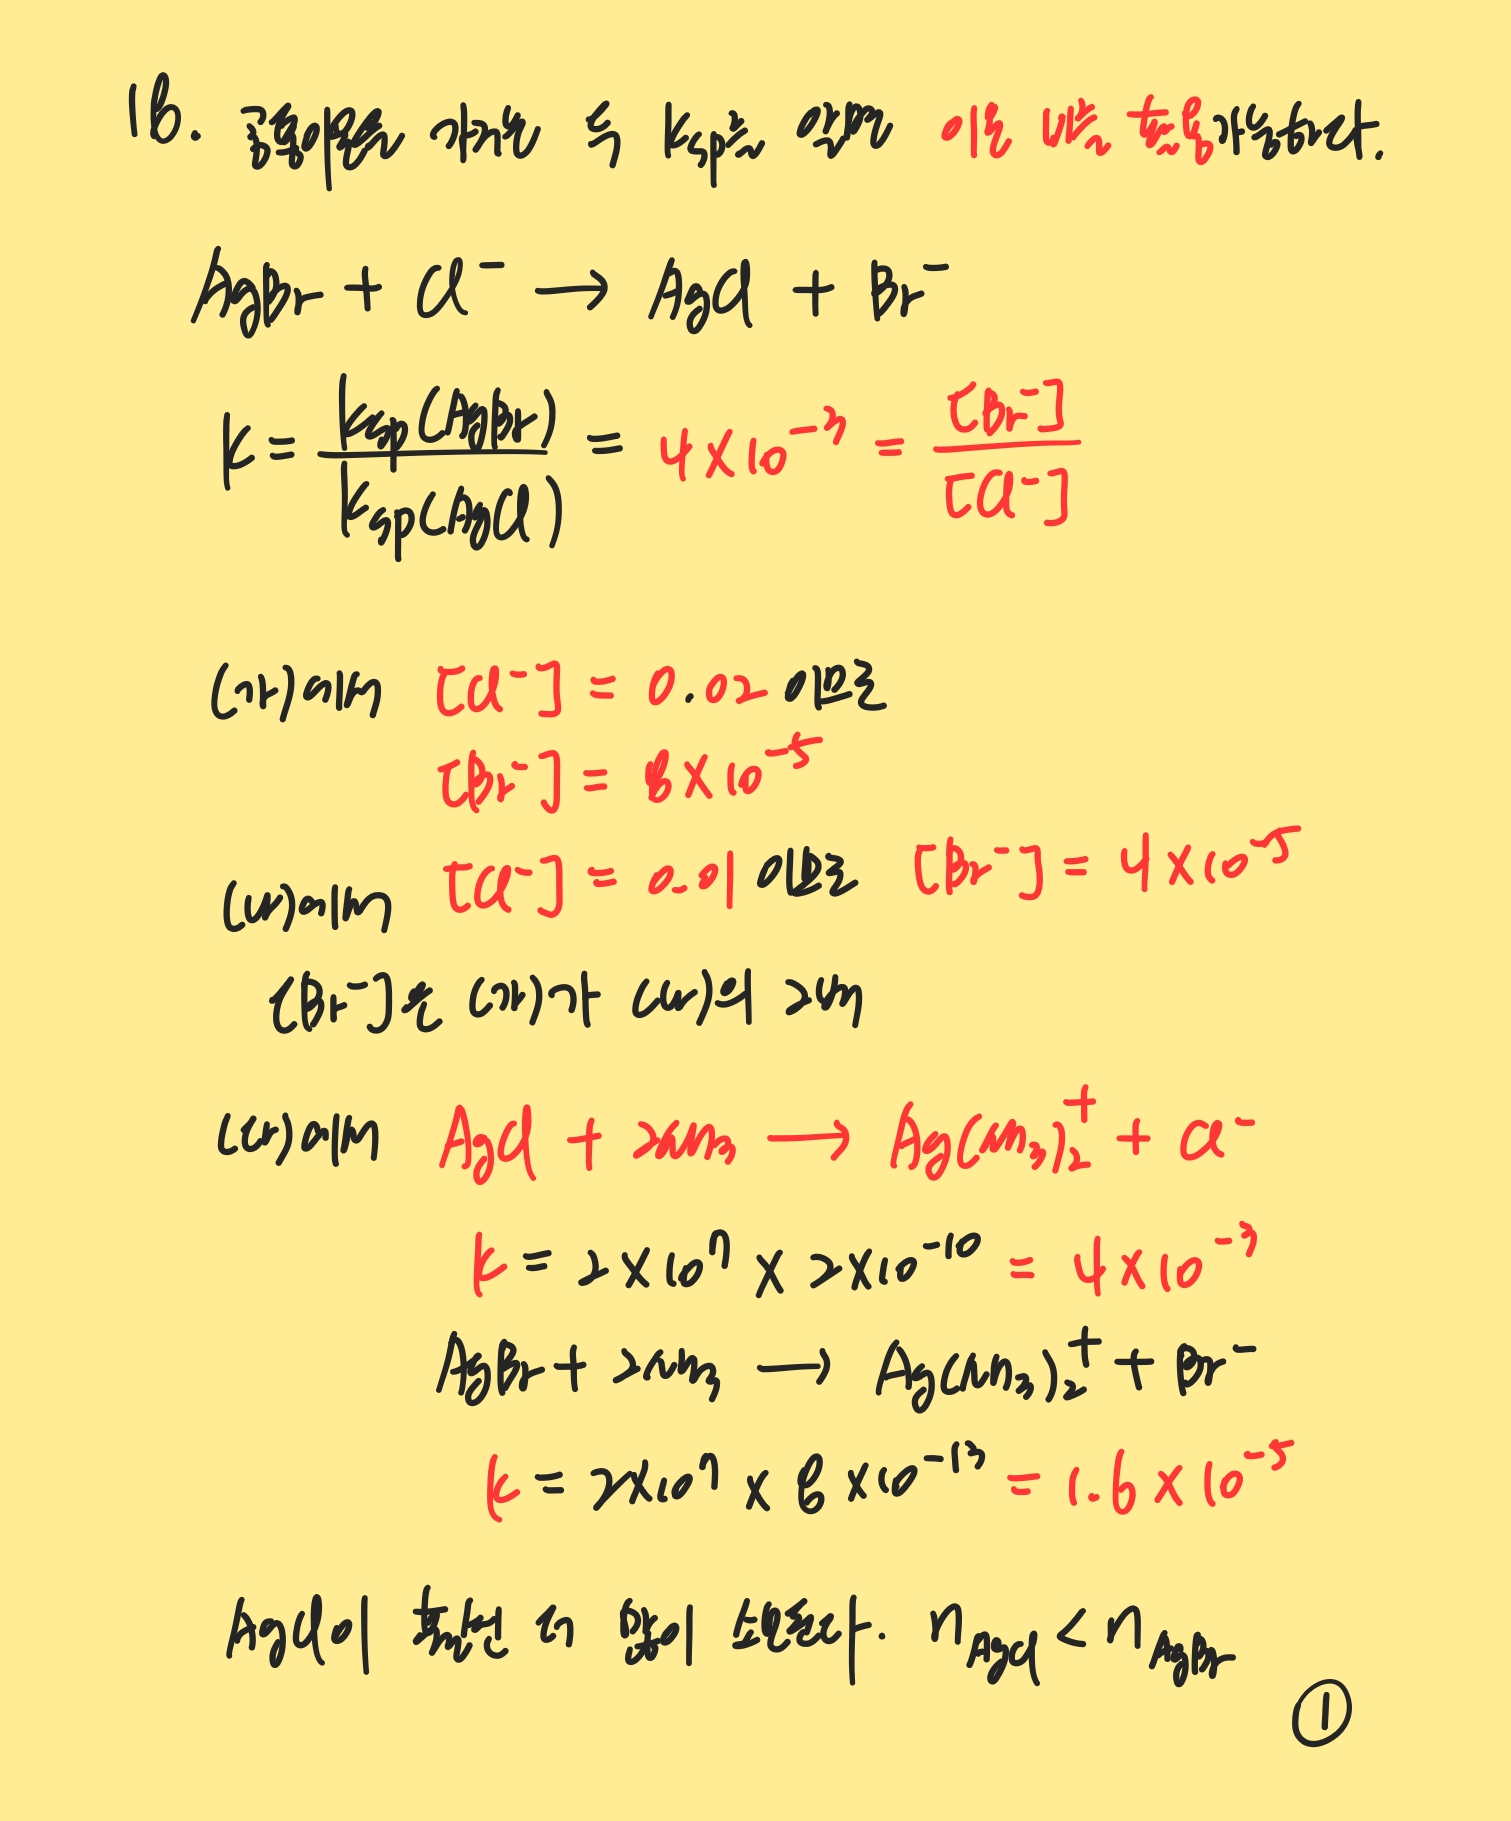 16. 공통이온을 가지는 두 Ksp를 알면 이온 비율 추론가능하다.
AgBr + Cl⁻ → AgCl + Br⁻
K = Ksp(AgBr) / Ksp(AgCl) = 4 × 10⁻³ = [Br⁻] / [Cl⁻]
(가)에서 [Cl⁻] = 0.02 이므로
[Br⁻] = 8 × 10⁻⁵
(나)에서 [Cl⁻] = 0.01 이므로 [Br⁻] = 4 × 10⁻⁵
[Br⁻]는 (가)가 (나)의 2배
(다)에서 AgCl + 2NH₃ → Ag(NH₃)₂⁺ + Cl⁻
K = 2 × 10⁷ × 2 × 10⁻¹⁰ = 4 × 10⁻³
AgBr + 2NH₃ → Ag(NH₃)₂⁺ + Br⁻
K = 2 × 10⁷ × 8 × 10⁻¹³ = 1.6 × 10⁻⁵
AgCl이 훨씬 더 많이 소모된다. n_AgCl < n_AgBr
①